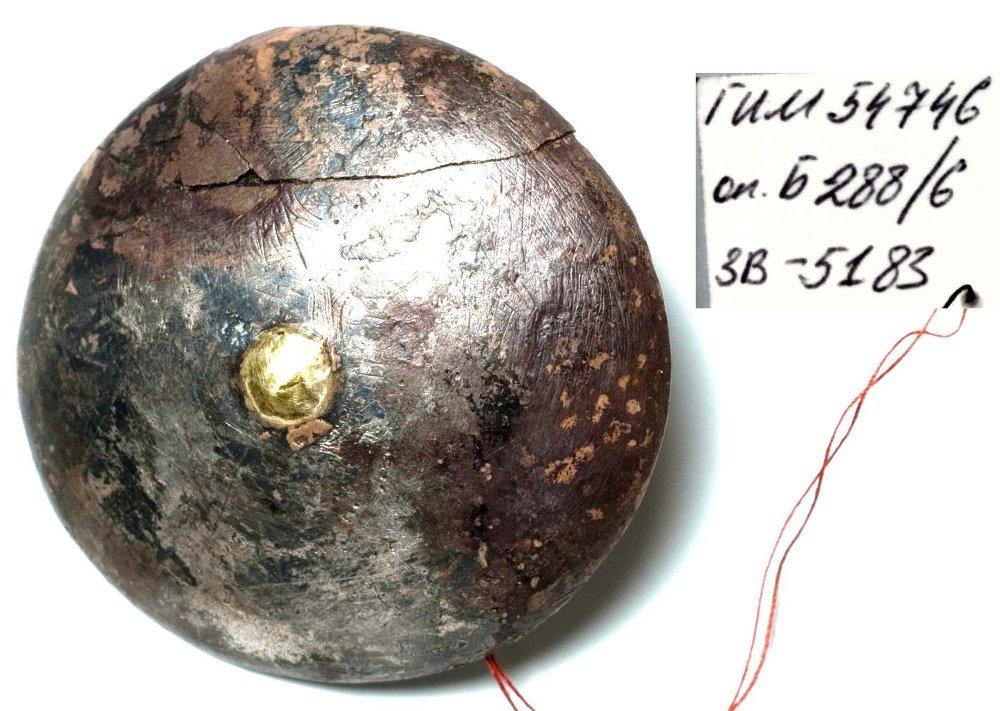 ГИМ 54746
оп. Б 288/6
ЗВ-5183